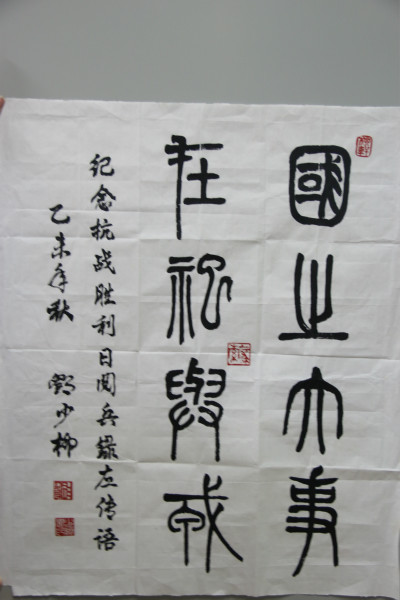 國之大事
在祀與戎
纪念抗战胜利日阅兵録左传语
乙未年秋 少柳